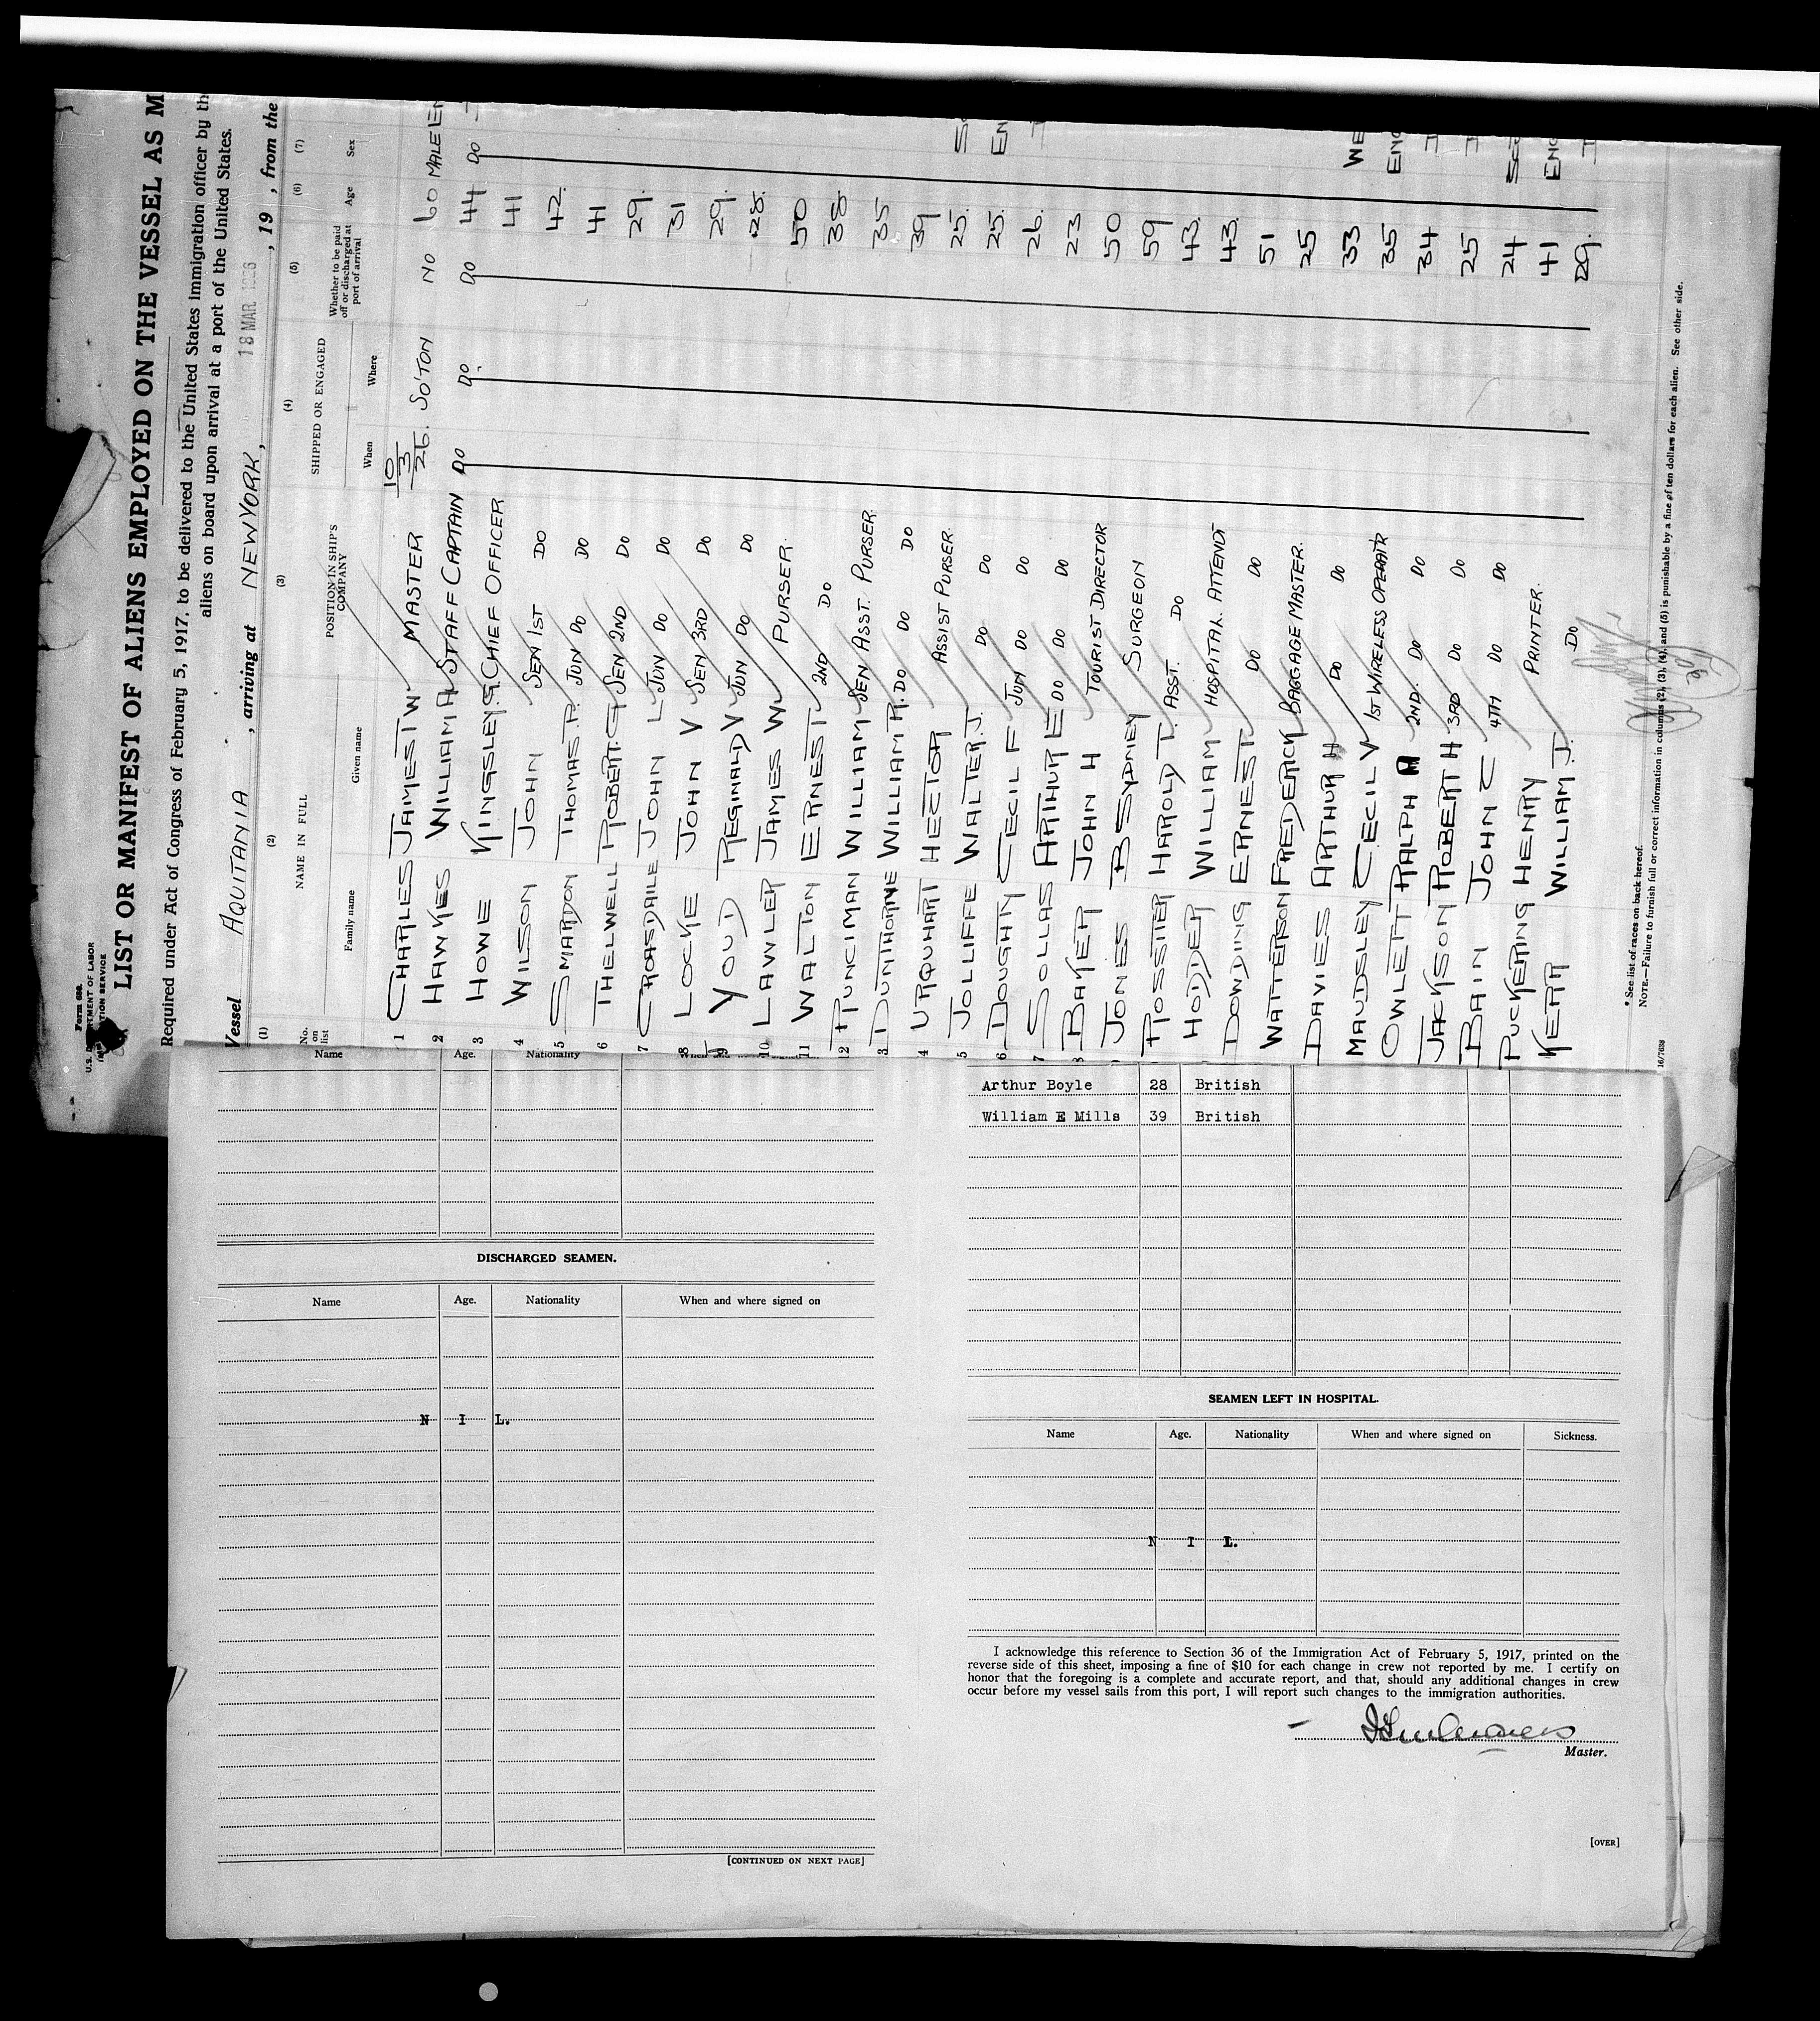 Form 680.
U.S. DEPARTMENT OF LABOR
IMMIGRATION SERVICE
LIST OR MANIFEST OF ALIENS EMPLOYED ON THE VESSEL AS M
Required under Act of Congress of February 5, 1917, to be delivered to the United States immigration officer by th
aliens on board upon arrival at a port of the United States.
Vessel AQUITANIA , arriving at NEW YORK, 18 MAR 1926 , 19 , from the
(1) (2) (3) (4) (5) (6) (7)
No. on list NAME IN FULL POSITION IN SHIP'S COMPANY SHIPPED OR ENGAGED Whether to be paid off or discharged at port of arrival Age Sex
Family name Given name When Where
1 CHARLES JAMES T W MASTER 10/3/26. SO'TON NO 60 MALE EN
2 HAWKES WILLIAM A STAFF CAPTAIN DO DO DO 44 DO
3 HOWE KINGSLEY. G. CHIEF OFFICER 41
4 WILSON JOHN SEN 1ST DO 42.
5 SMARDON THOMAS. R. JUN DO DO 41
6 THELWELL ROBERT. G. SEN 2ND DO 29.
7 CROASDAILE JOHN L JUN DO DO 31
8 LOCKE JOHN V SEN 3RD DO 29.
9 YOUD REGINALD V JUN DO DO 28.
10 LAWLER JAMES W PURSER. 50
11 WALTON ERNEST 2ND DO 38
12 RUNCIMAN WILLIAM SEN ASST. PURSER. 35
3 DUNTHORNE WILLIAM R. DO DO DO 39
4 URQUHART HECTOR ASSIST PURSER. 25.
5 JOLLIFFE WALTER. J. DO DO 25.
6 DOUGHTY CECIL F JUN DO DO 26.
7 SOLLAS ARTHUR E DO DO DO 23
8 BAKER JOHN H TOURIST DIRECTOR 50
JONES B SYDNEY SURGEON 59
ROSSITER HAROLD T. ASST. DO 43.
HODDER WILLIAM HOSPITAL ATTENDT 43.
DOWDING ERNEST DO DO 51
WATTERSON FREDERICK BAGGAGE MASTER. 25
DAVIES ARTHUR H DO DO 33
MAUDSLEY CECIL V 1ST WIRELESS OPERATR 35
OWLETT RALPH 2ND. DO DO 34
JACKSON ROBERT H 3RD DO DO 25
BAIN JOHN C 4TH DO DO 24
PUCKERING HENRY PRINTER. 41
KERR WILLIAM J. DO 29.
* See list of races on back hereof.
NOTE.—Failure to furnish full or correct information in columns (2), (3), (4), and (5) is punishable by a fine of ten dollars for each alien. See other side.
16/7638
Name Age. Nationality
Arthur Boyle 28 British
William E Mills 39 British
DISCHARGED SEAMEN.
Name Age. Nationality When and where signed on
N I L.
[CONTINUED ON NEXT PAGE]
SEAMEN LEFT IN HOSPITAL.
Name Age. Nationality When and where signed on Sickness.
N I L.
I acknowledge this reference to Section 36 of the Immigration Act of February 5, 1917, printed on the
reverse side of this sheet, imposing a fine of $10 for each change in crew not reported by me. I certify on
honor that the foregoing is a complete and accurate report, and that, should any additional changes in crew
occur before my vessel sails from this port, I will report such changes to the immigration authorities.
Master.
[OVER]